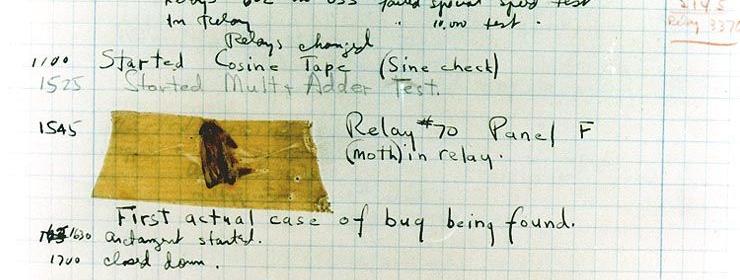 Relays 6-2 in 033 failed special speed test
In Relay " 10.000 test.
Relays changed
1100 Started Cosine Tape (Sine check)
1525 Started Mult+ Adder Test.
1545 Relay #70 Panel F
(moth) in relay.
First actual case of bug being found.
1630 arctangent started.
1700 closed down.
2145
Relay 3370